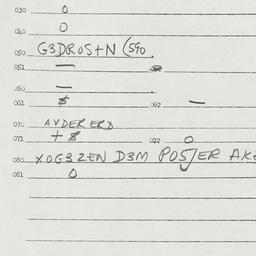 030 0
040 0
050 G3DROSTN (590
051 —
060 —
061 $ 062 —
070 AVDERERD
071 + 8 072 0
080 XOG3ZEN D3M POSTER AK
081 0